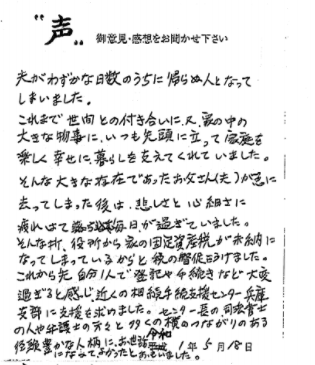 "声"
御意見・感想をお聞かせ下さい
夫がわずかな日数のうちに帰らぬ人となって
しまいました。
これまで世間との付き合いに、又、家の中の
大きな物事に、いつも先頭に立って家族を
楽しく幸せに、暮らしを支えてくれていました。
そんな大きな存在であったお父さん(夫)が急に
去ってしまった後は、悲しさと心細さに
疲れはて 毎日が過ぎていました。
そんな折、役所から家の固定資産税が未納に
なってしまっているからと税の督促も
これから先自分1人で登記や手続きなど大変
過ぎると感じ、近くの相続手続支援センター兵庫
支部に支援を求めました。センター長の司法書士
の人や弁護士の方々と多くの横のつながりのある
信頼豊かな人柄に、お世話
になってよかったと思いました。
令和
年5月18日